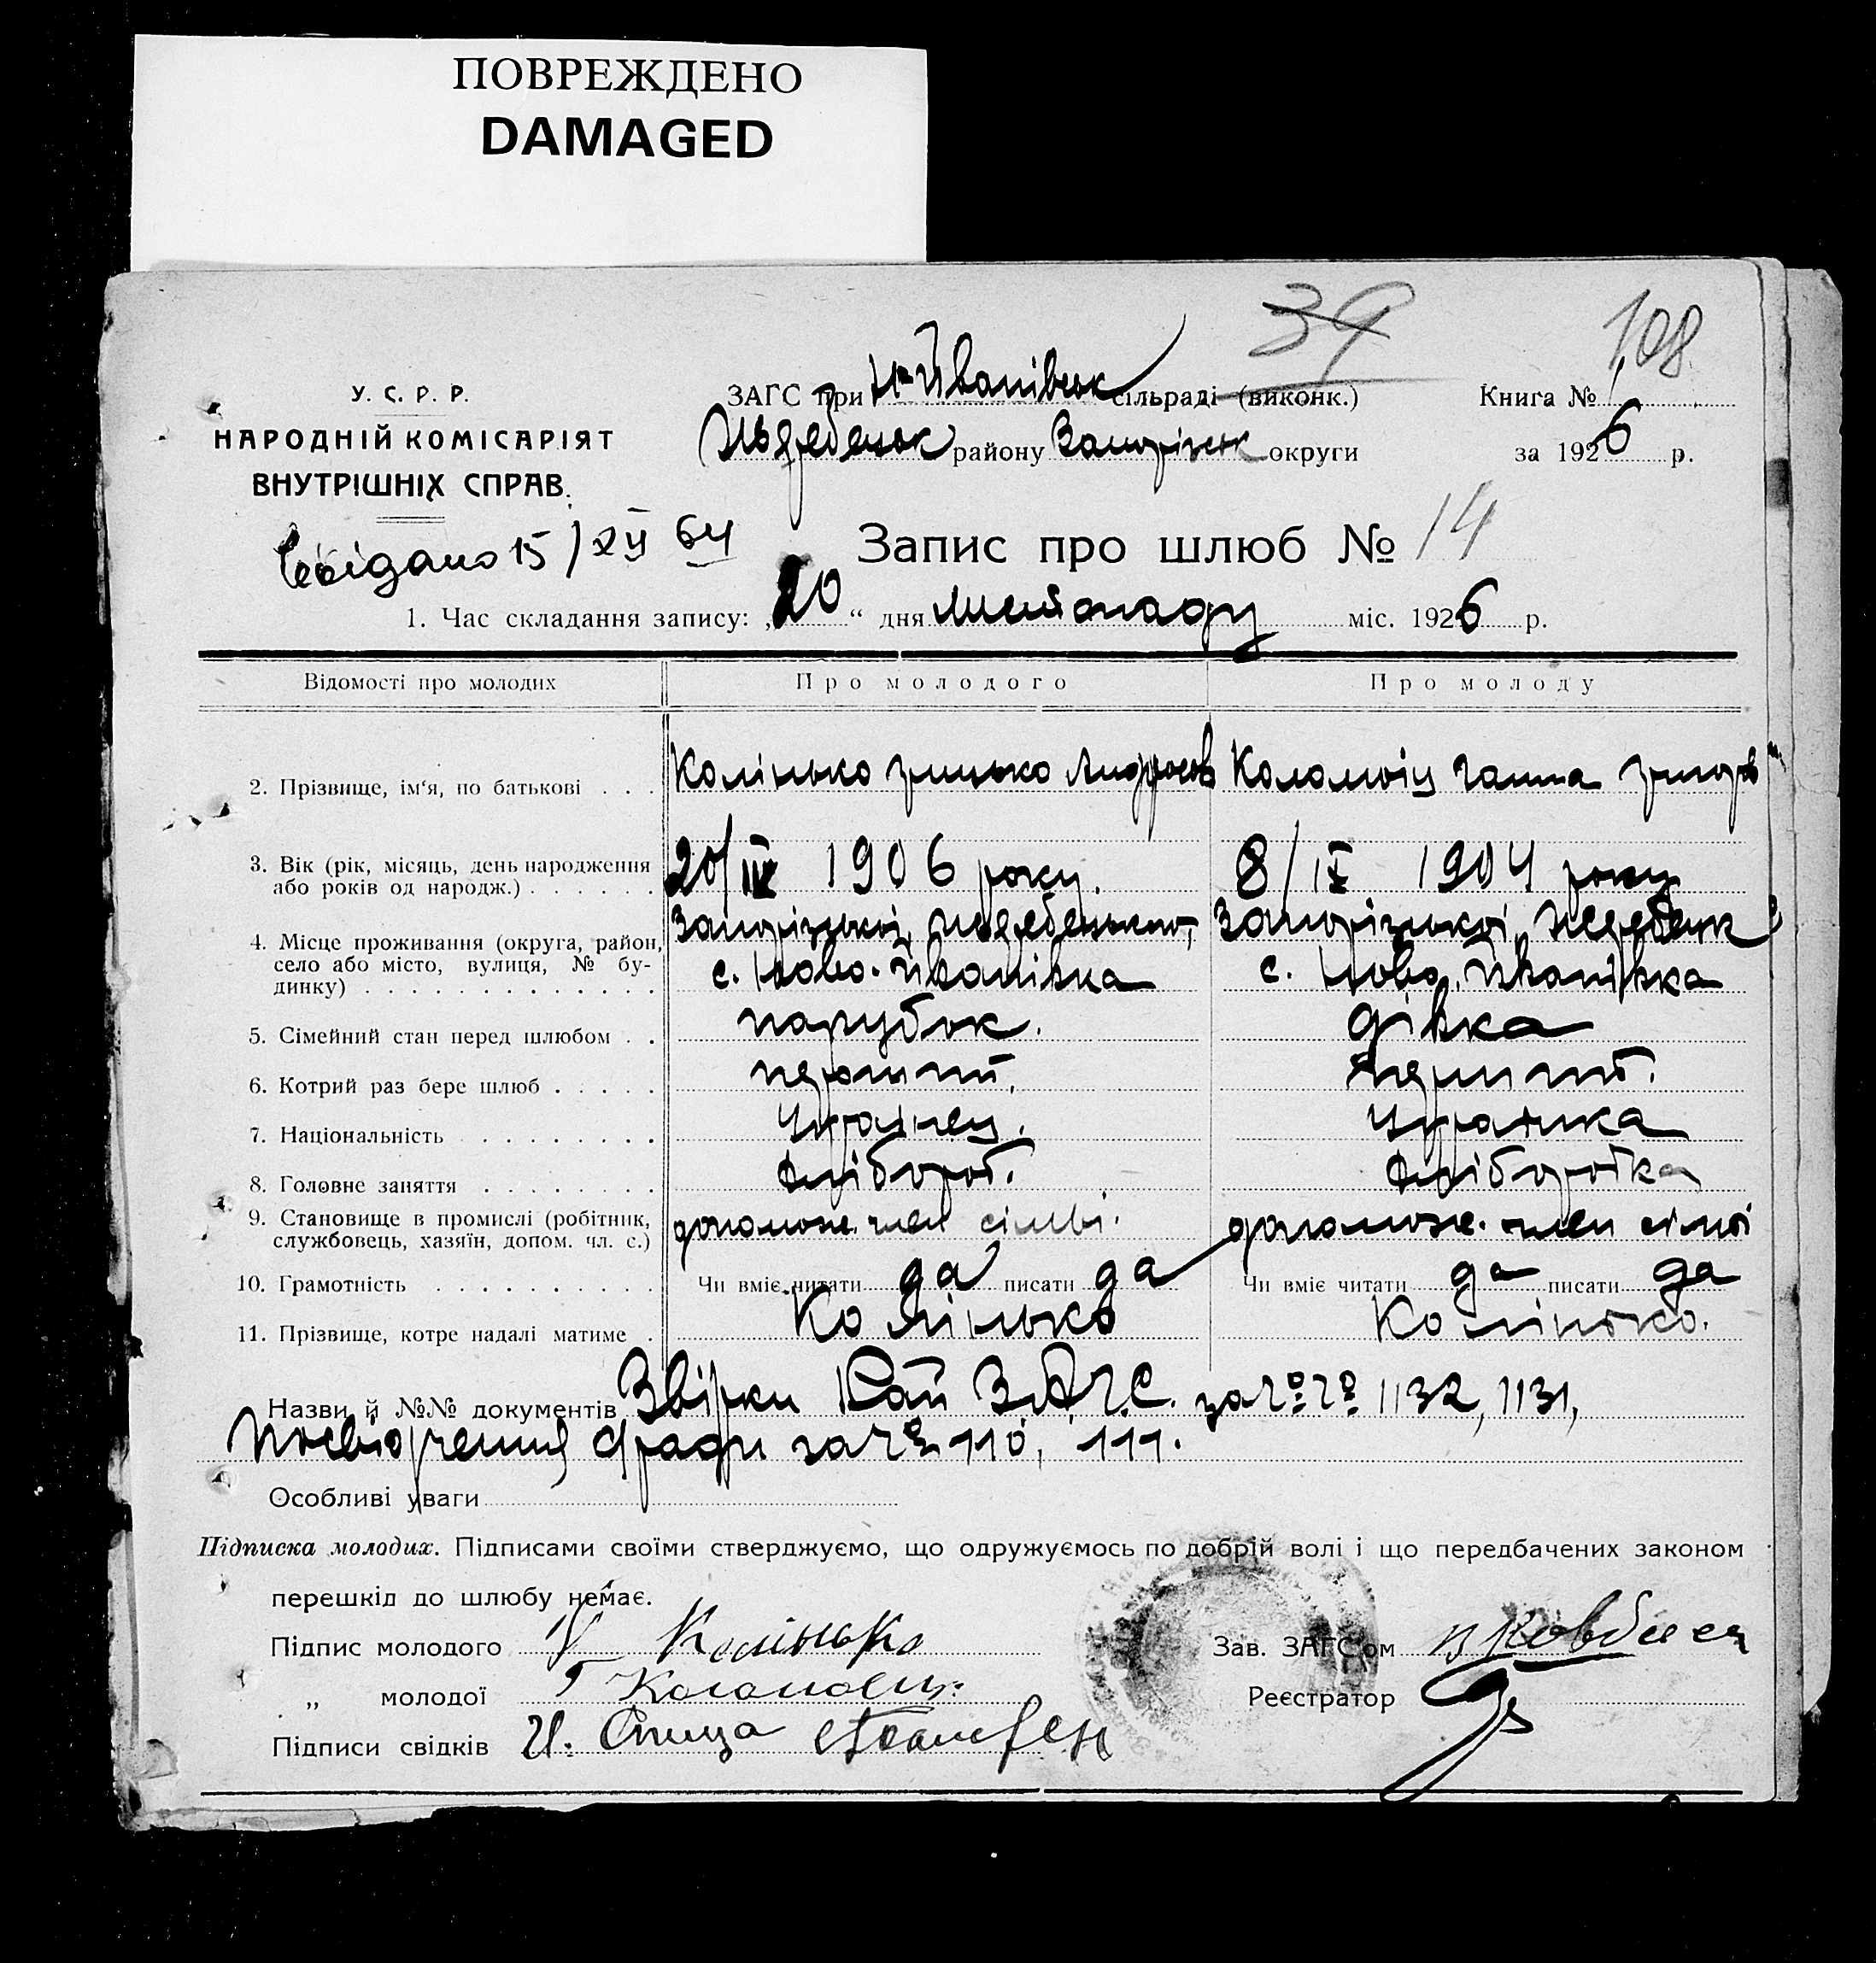 ПОВРЕЖДЕНО
DAMAGED
39
108
У. С. Р. Р.
НАРОДНІЙ КОМІСАРІЯТ
ВНУТРІШНІХ СПРАВ.
ЗАГС при Н-Йванівськ сільраді (виконк.)
району Запоріжськ округи
Книга № 1
за 1926 р.
15/XII 64
Запис про шлюб № 14
1. Час складання запису: „20“ дня листопаду міс. 1926 р.
Відомості про молодих
Про молодого
Про молоду
2. Прізвище, ім‘я, по батькові . . .
Колінько Грицько Андреєв
Коломоїц Ганна Григор
3. Вік (рік, місяць, день народження
або років од народж.) . . . . . .
20/IV 1906 року.
8/IX 1904 року
4. Місце проживання (округа, район,
село або місто, вулиця, № бу-
динку) . . . . . . . . . . . . .
Запорізької,
с. Ново-Йванівка
Запорізької,
с. Ново-Йванівка
5. Сімейний стан перед шлюбом . .
парубок.
дівка
6. Котрий раз бере шлюб . . . . .
перший.
перший.
7. Національність . . . . . . . . .
Українец.
Українка
8. Головне заняття . . . . . . . .
хлібороб.
хліборобка
9. Становище в промислі (робітник,
службовець, хазяїн, допом. чл. с.)
допомож. член сімьі.
допомож. член сімьі
10. Грамотність . . . . . . . . . .
Чи вміє читати да писати да
Чи вміє читати да писати да
11. Прізвище, котре надалі матиме .
Колінько
Колінько.
Назви й №№ документів Звірки Рай З.А.Г.С. за №№ 1132, 1131,
Посвідчення с/ради за № 110, 111.
Особливі уваги
Підписка молодих. Підписами своїми стверджуємо, що одружуємось по добрій волі і що передбачених законом
перешкід до шлюбу немає.
Підпис молодого Колінько
„ молодої Г Коломоец.
Підписи свідків И. Спица
Зав. ЗАГС'ом
Реєстратор